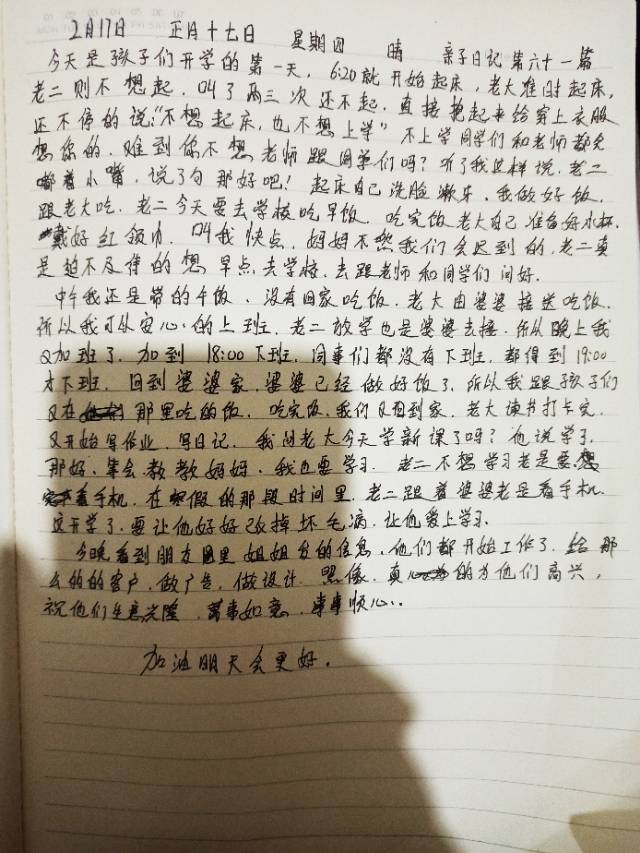 2月17日 正月十七日 星期四 晴 亲子日记第六十一篇
今天是孩子们开学的第一天，6:20就开始起床，老大准时起床，
老二则不想起．叫了两三次还不起．直接抱起来给穿上衣服
还不停的说："不想起床，也不想上学" 不上学同学们和老师都会
想你的．难到你不想老师跟同学们吗？听了我这样说．老二
嘟着小嘴．说了句那好吧！起床自己洗脸漱牙．我做好饭．
跟老大吃．老二今天要去学校吃早饭．吃完饭老大自己准备好水杯．
戴好红领巾．叫我快点．妈妈不然我们会迟到的．老二真
是迫不及待的想早点去学校．去跟老师和同学们问好．
中午我还是带的午饭．没有回家吃饭．老大由婆婆接送吃饭．
所以我可以安心的上班．老二放学也是婆婆去接．所以晚上我
又加班了．加到18:00下班．同事们都没有下班．都得到19:00
才下班．回到婆婆家．婆婆已经做好饭了．所以我跟孩子们
又在那里吃的饭．吃完饭．我们又回到家．老大读书打卡完．
又开始写作业．写日记．我问老大今天学新课了吗？他说学了．
那好．拿会教教妈妈．我也要学习．老二不想学习老是要想
看手机．在假的那段时间里．老二跟着婆婆老是看手机．
这开学了．要让他好好改掉坏毛病．让他爱上学习．
今晚看到朋友圈里姐姐发的信息．他们都开始工作了．给那
么的的客户．做广告．做设计．照像．真心的为他们高兴，
祝他们生意兴隆．万事如意．事事顺心．．
加油明天会更好．